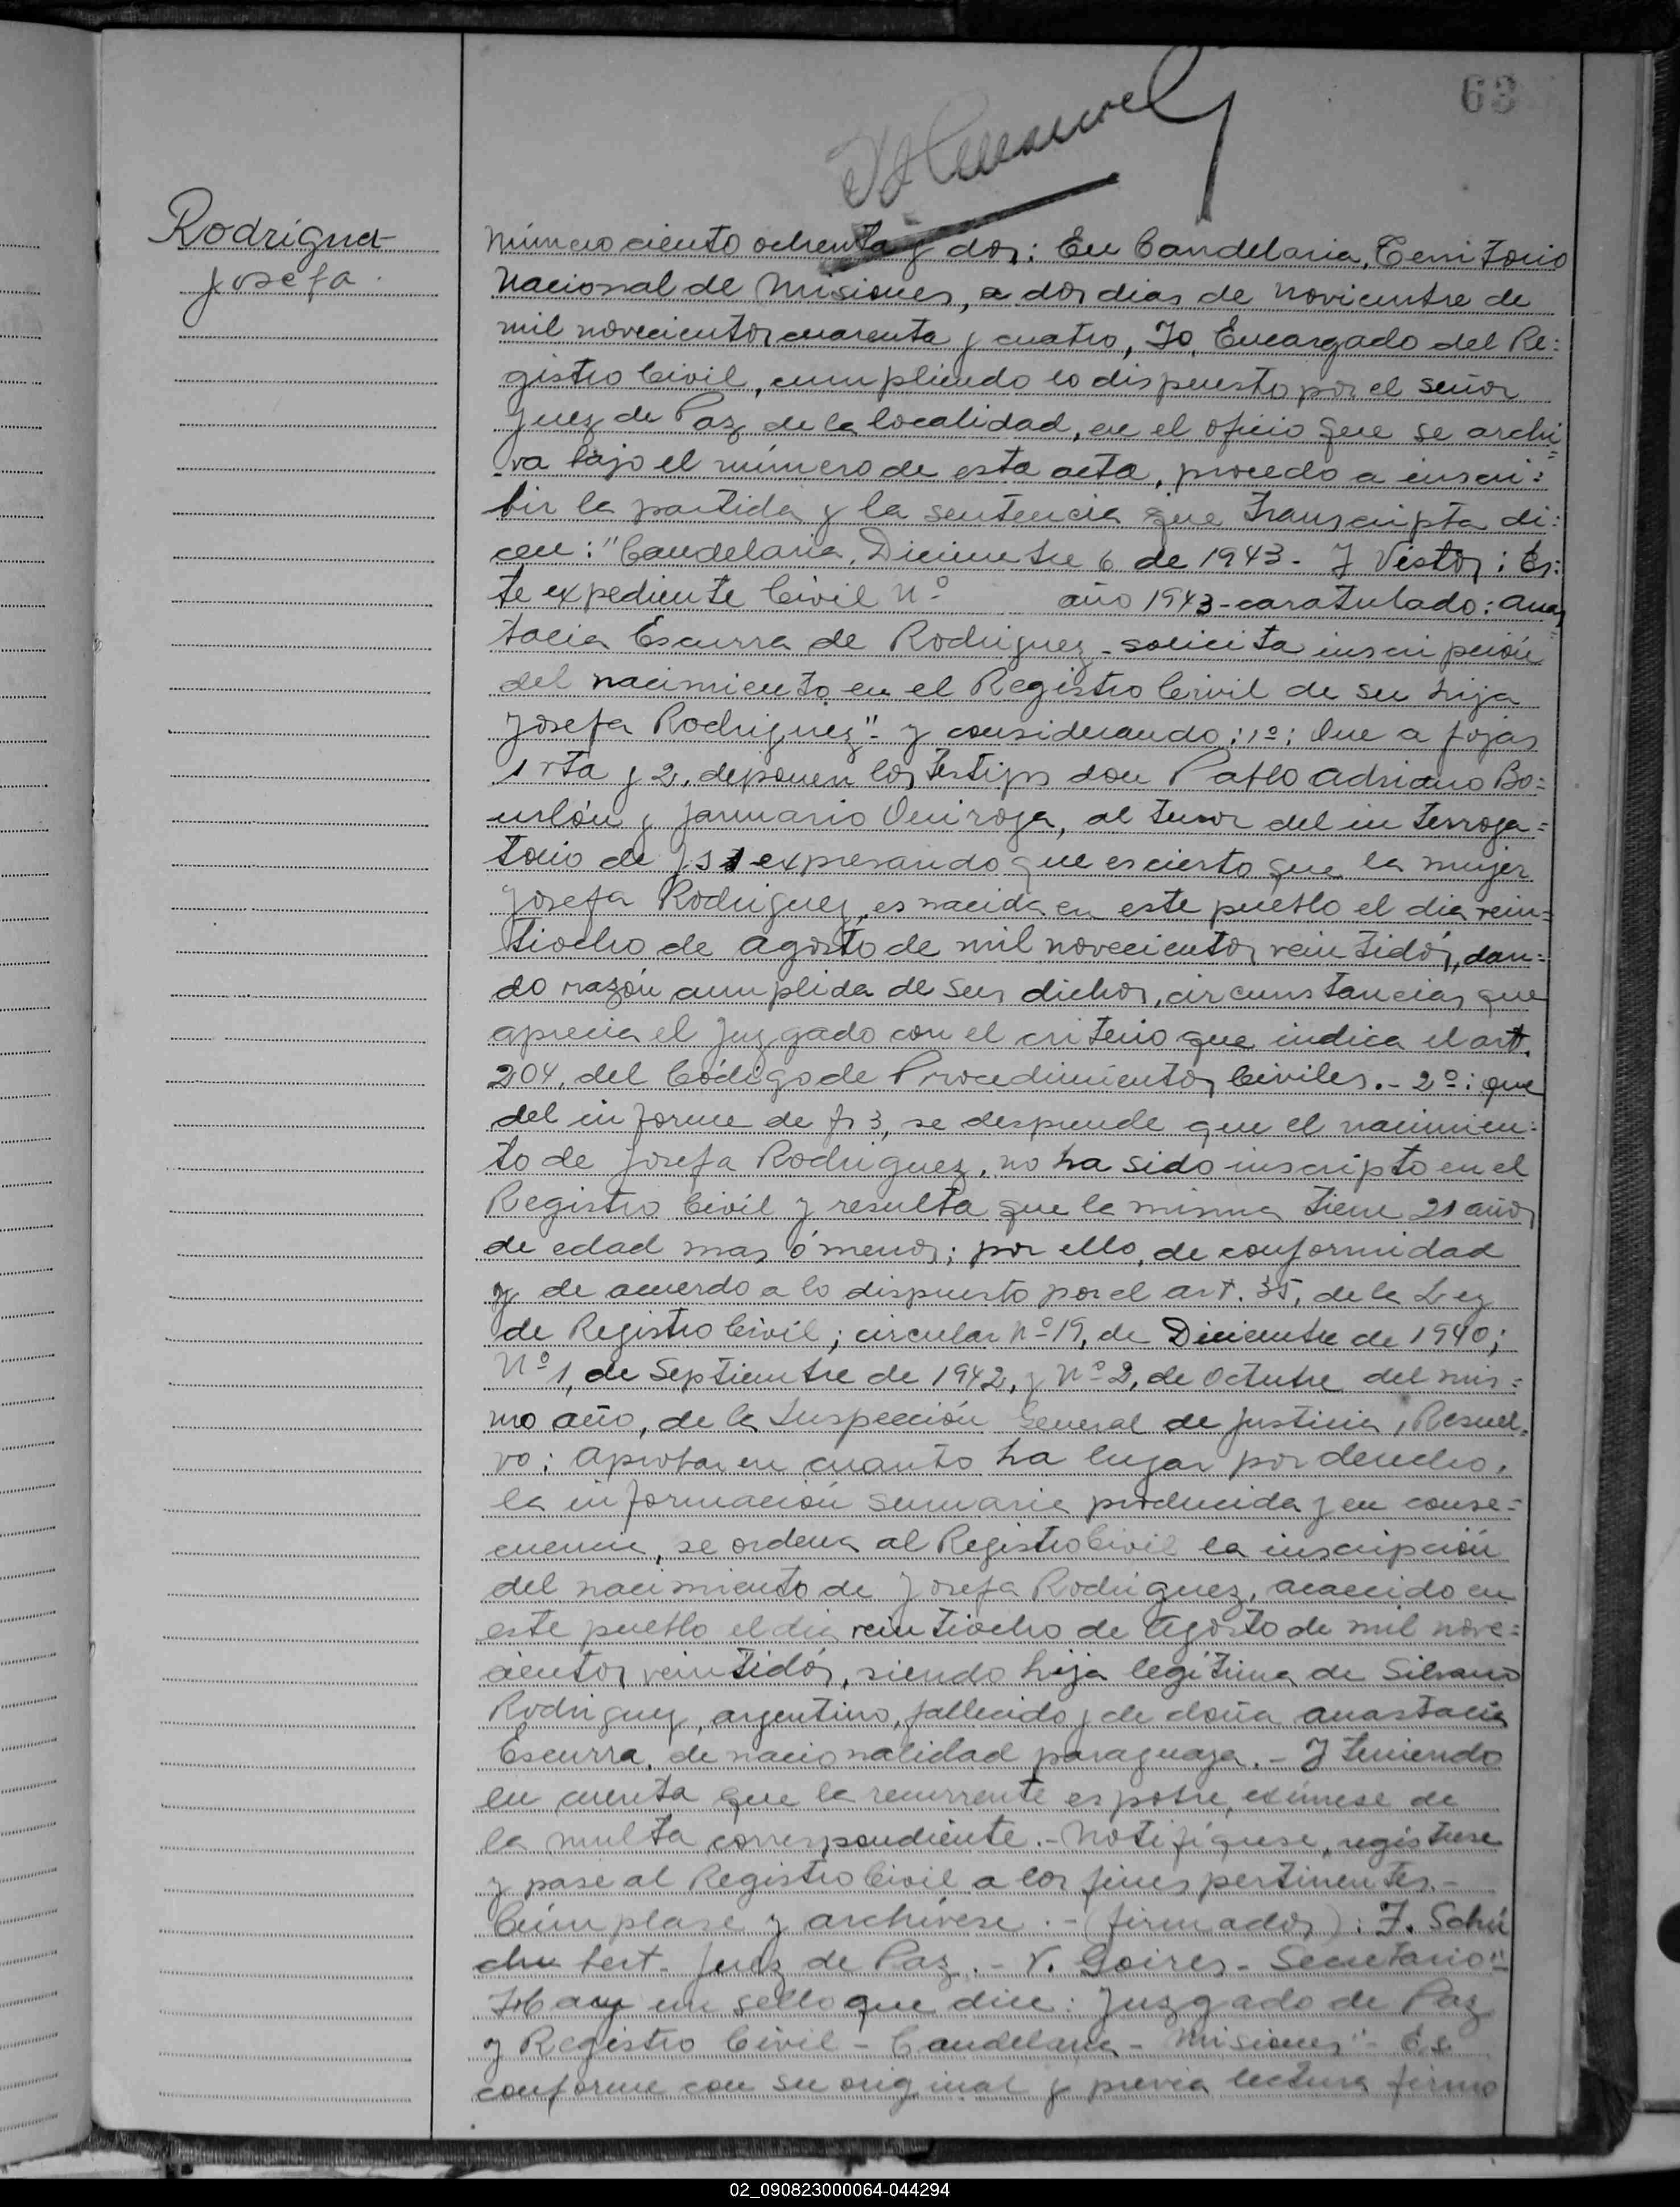 63
Rodriguez
Josefa
Número ciento ochenta y dos: En Candelaria, Territorio
Nacional de Misiones, a dos dias de Noviembre de
mil novecientos cuarenta y cuatro, Yo, Encargado del Re=
gistro Civil, cumpliendo lo dispuesto por el señor
Juez de Paz de la localidad, en el oficio que se archi=
va bajo el número de esta acta, procedo a inscri=
bir la partida y la sentencia que transcripta di=
cen: "Candelaria, Diciembre 6 de 1943.- Y Vistos: Es=
te expediente Civil Nº año 1943-caratulado: Anas=
tacia Escurra de Rodriguez - solicita inscripción
del nacimiento en el Registro Civil de su hija
Josefa Rodriguez"- y considerando: 1º: Que a fojas
1 vta y 2, deponen los testigos don Pablo Adriano Bo=
urlón y Januario Quiroga, al tenor del interroga=
torio de fs 1 expresando que es cierto que la mujer
Josefa Rodriguez, es nacida en este pueblo el dia vein=
tiocho de Agosto de mil novecientos veintidós, dan=
do razón cumplida de sus dichos, circunstancias que
aprecia el Juzgado con el criterio que indica el art.
204, del Código de Procedimientos Civiles.- 2º: que
del informe de fs 3, se desprende que el nacimien=
to de Josefa Rodriguez, no ha sido inscripto en el
Registro Civil y resulta que la misma tiene 21 años
de edad mas ó menos; por ello, de conformidad
y de acuerdo a lo dispuesto por el art. 35, de la Ley
de Registro Civil; circular Nº 19, de Diciembre de 1940;
Nº 1, de Septiembre de 1942, y Nº 2, de Octubre del mis=
mo año, de la Inspección General de Justicia, Resuel=
vo: Aprobar en cuanto ha lugar por derecho,
la información sumaria producida y en conse=
cuencia, se ordena al Registro Civil la inscripción
del nacimiento de Josefa Rodriguez, acaecido en
este pueblo el dia veintiocho de Agosto de mil nove=
cientos veintidós, siendo hija legítima de Silvano
Rodriguez, argentino, fallecido y de doña Anastacia
Escurra, de nacionalidad paraguaya.- Y teniendo
en cuenta que la recurrente es pobre, exímese de
la multa correspondiente.- Notifíquese, registrese
y pase al Registro Civil a los fines pertinentes.-
Cúmplase y archívese.- (firmados): F. Schu
chu bert - Juez de Paz.- V. Goires - Secretario"-
Hay un sello que dice: Juzgado de Paz
y Registro Civil - Candelaria - Misiones"- Es
conforme con su original y previa lectura firmo
02_090823000064-044294